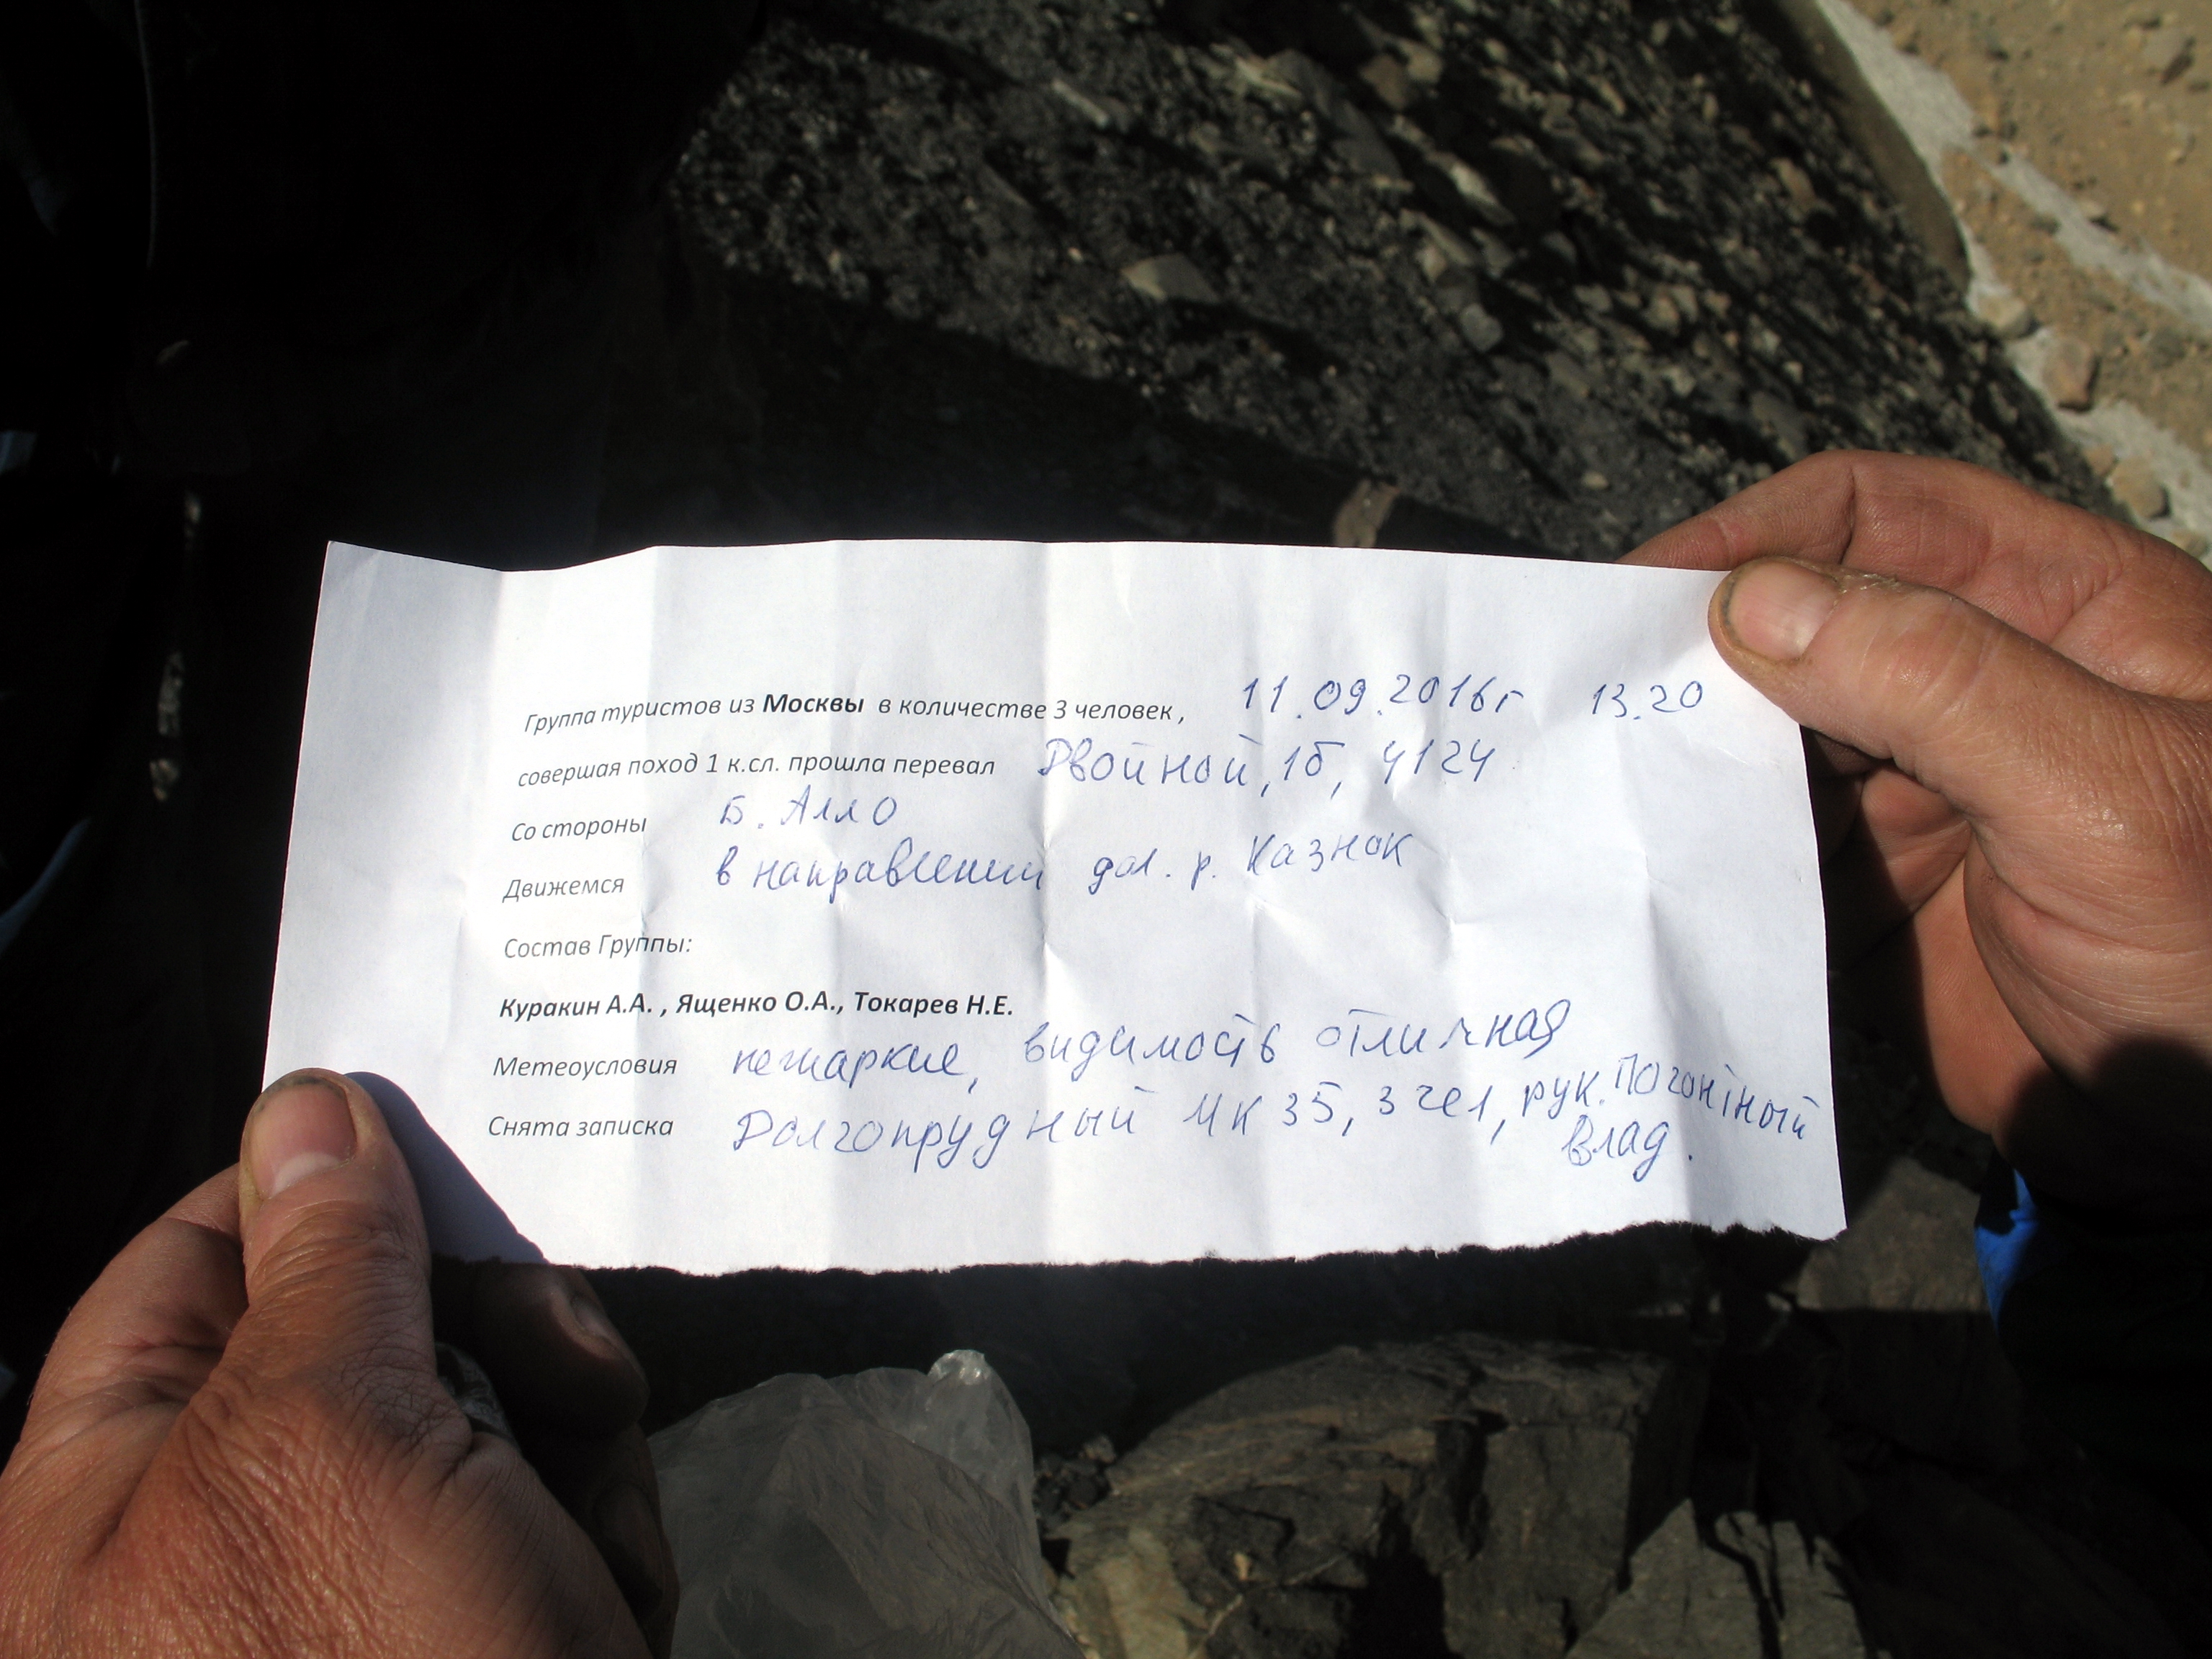 Группа туристов из Москвы в количестве 3 человек, 11.09.2016г 13.20
совершая поход 1 к.сл. прошла перевал Двойной, 1б, 4124
Со стороны Б. Алло
Движемся в направлении дол. р. Казнок
Состав Группы:
Куракин А.А. , Ященко О.А., Токарев Н.Е.
Метеоусловия нежаркие, видимость отличная
Снята записка Долгопрудный МК 35, 3 чел, рук.
Влад.